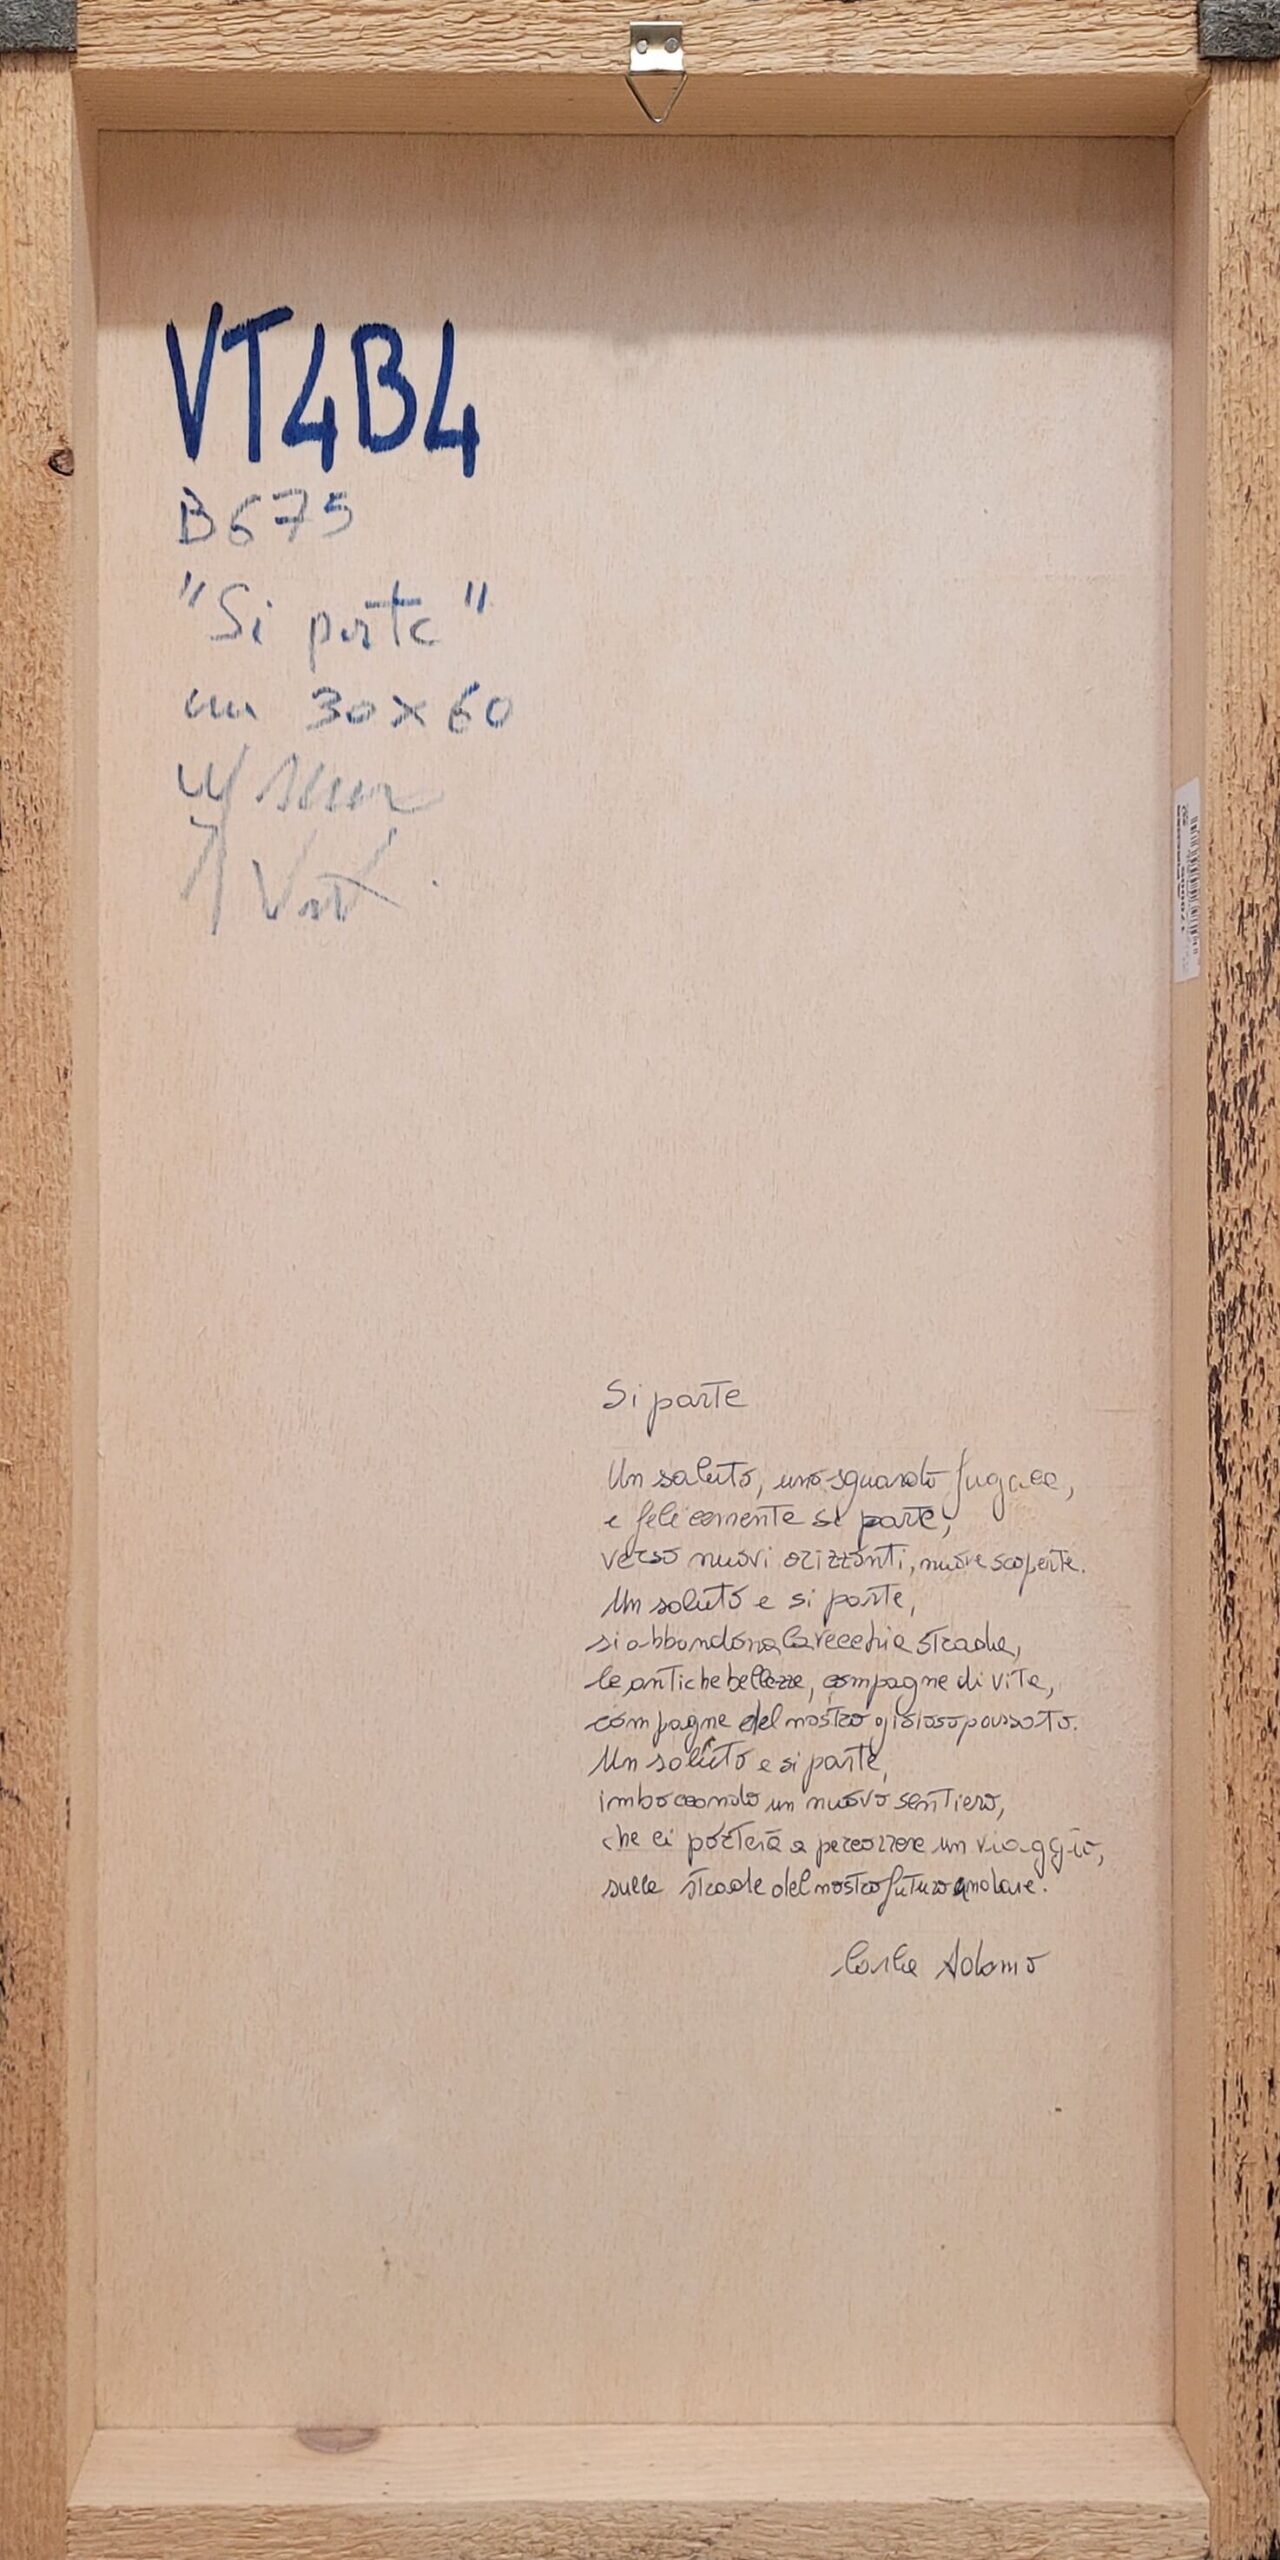 VT4B4
B675
"Si parte"
cm 30x60
Si parte
Un saluto, uno sguardo fugace,
e felicemente si parte,
verso nuovi orizzonti, nuove scoperte.
Un saluto e si parte,
si abbandona la vecchia strada,
le antiche bellezze, compagne di vita,
compagne del nostro gioioso passato.
Un saluto e si parte,
imboccando un nuovo sentiero,
che ci porterà a percorrere un viaggio,
sulle strade del nostro futuro andare.
Carla Adamo